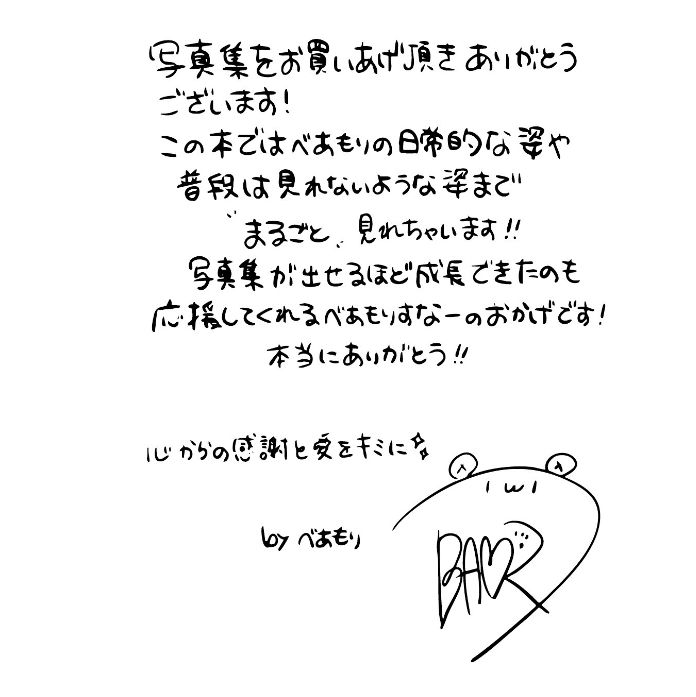 写真集をお買いあげ頂きありがとう
ございます!
この本ではべあもりの日常的な姿や
普段は見れないような姿まで
〝まるごと〟見れちゃいます!!
写真集が出せるほど成長できたのも
応援してくれるべあもりすなーのおかげです!
本当にありがとう!!
心からの感謝と愛をキミに
by べあもり